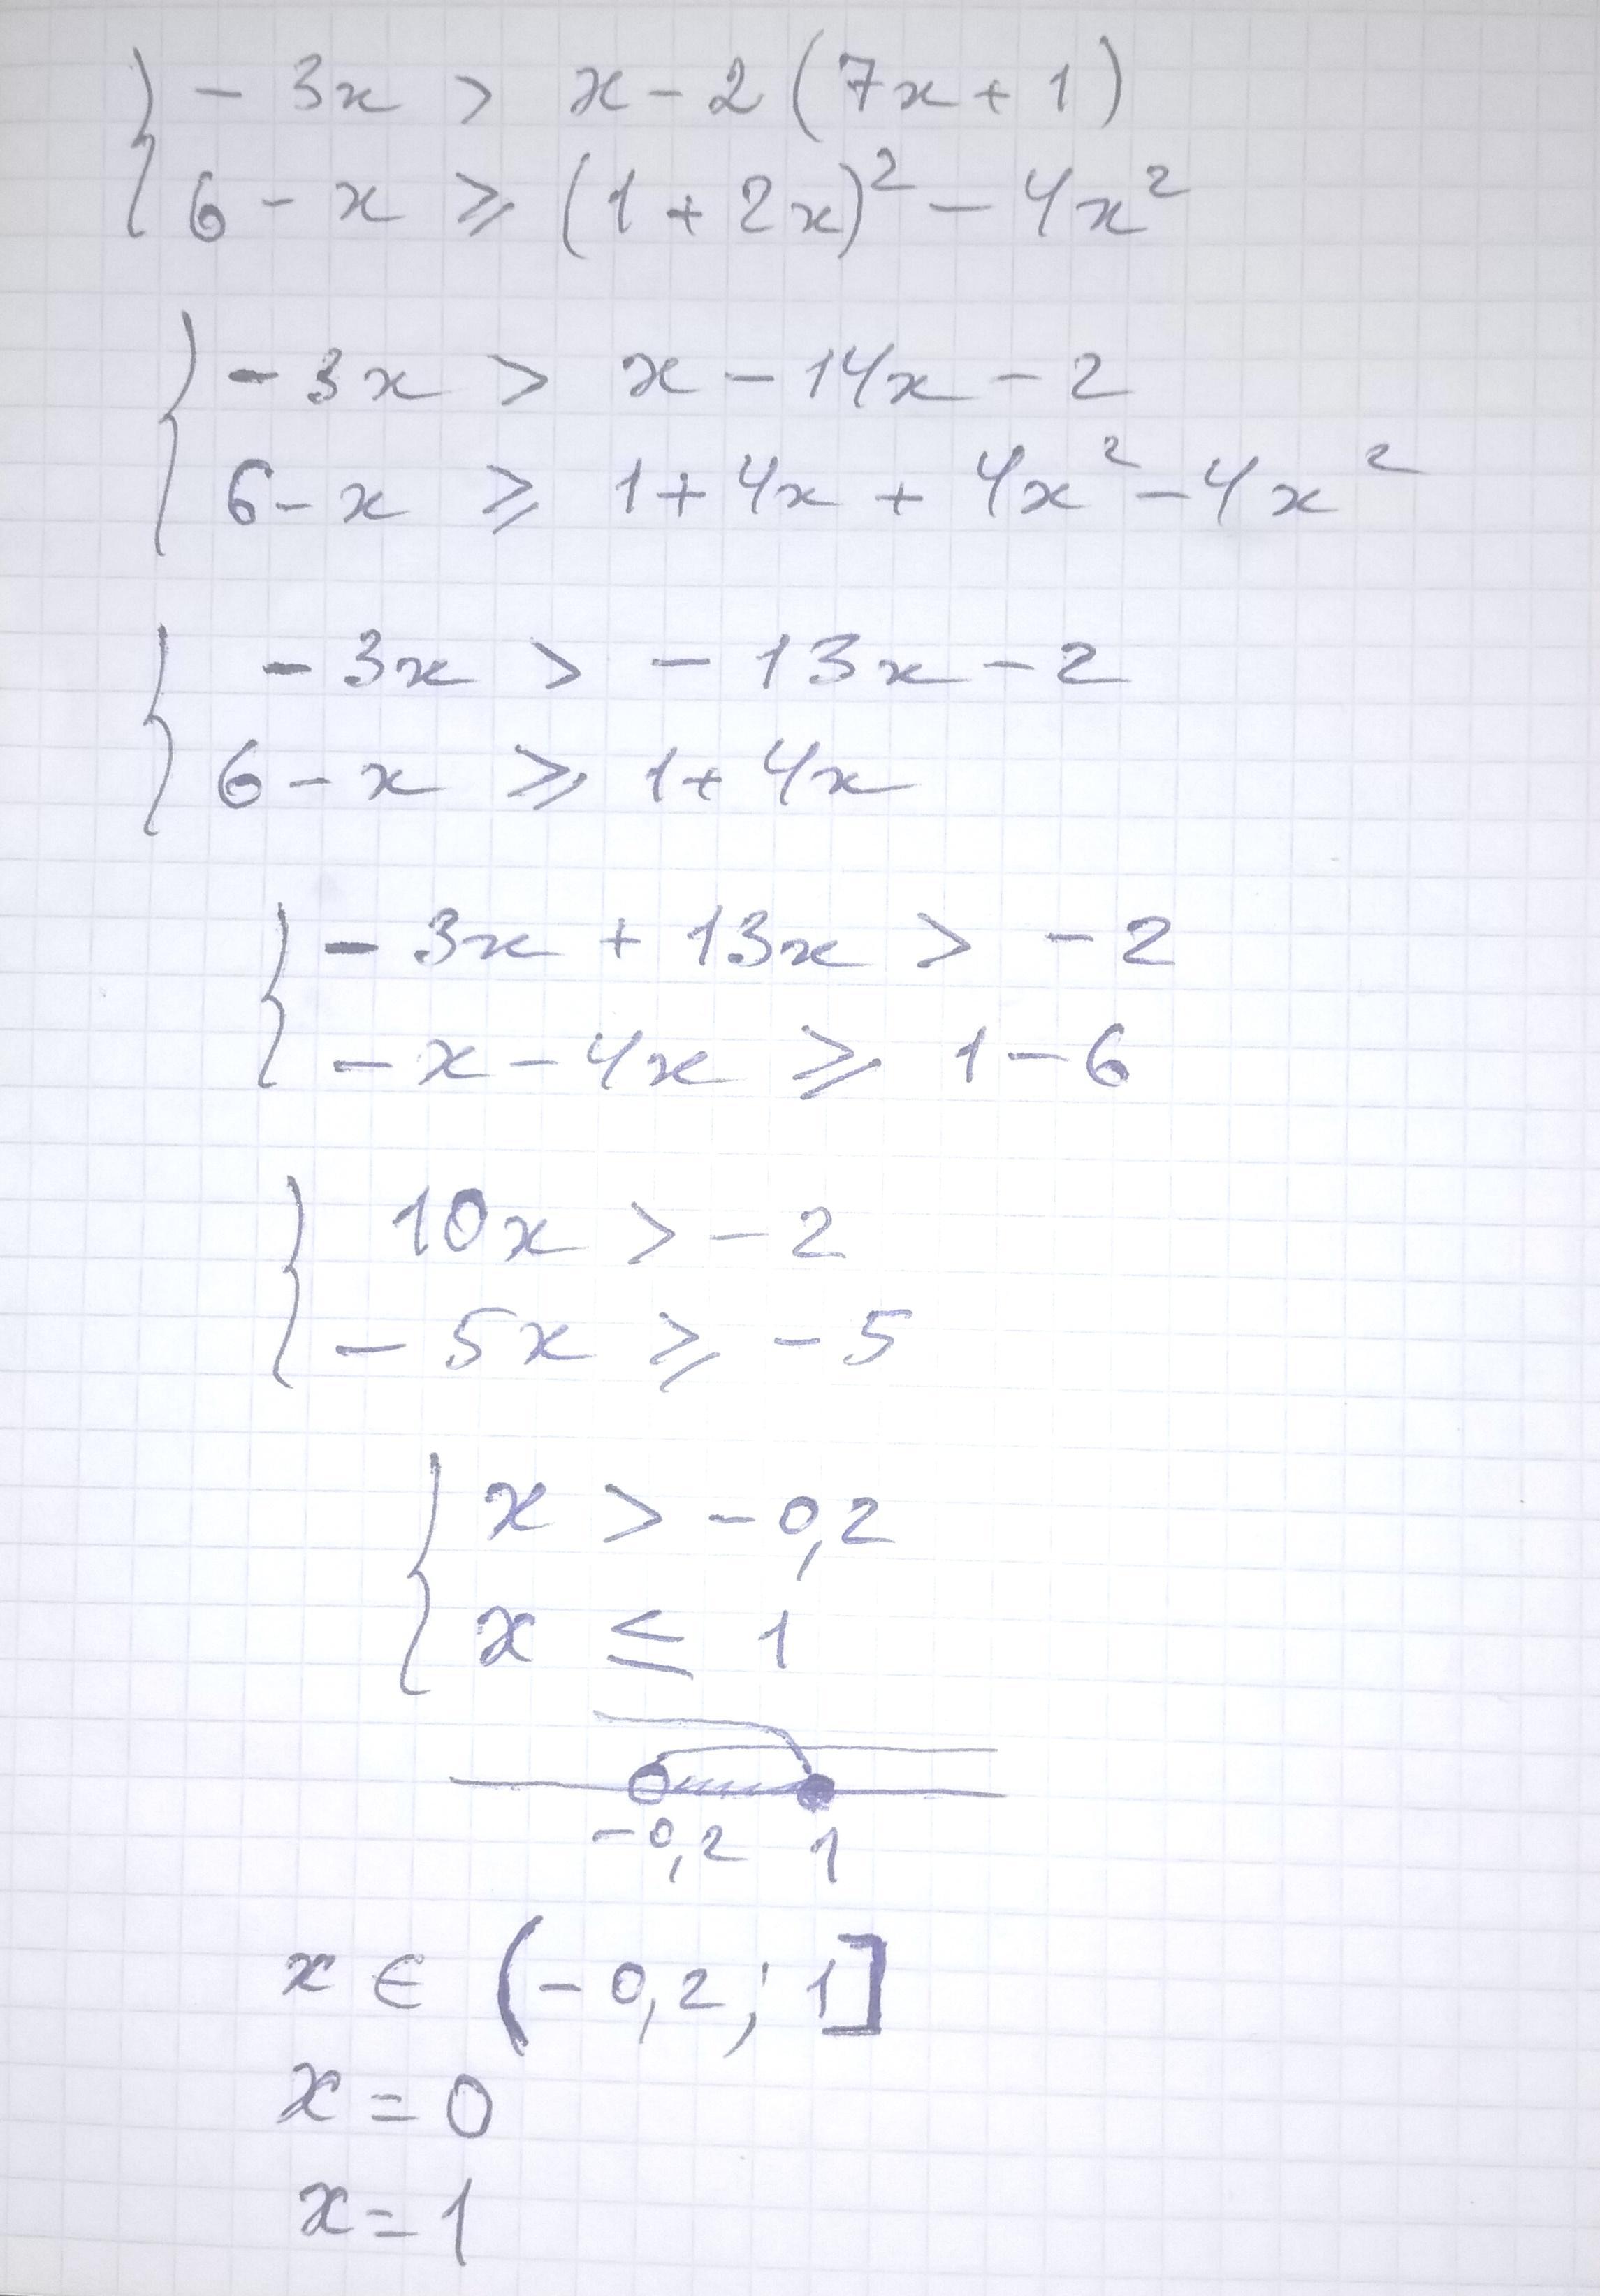 { - 3x > x - 2 (7x + 1)
6 - x ⩾ (1 + 2x)² - 4x²
{ - 3x > x - 14x - 2
6 - x ⩾ 1 + 4x + 4x² - 4x²
{ - 3x > - 13x - 2
6 - x ⩾ 1 + 4x
{ - 3x + 13x > - 2
- x - 4x ⩾ 1 - 6
{ 10x > - 2
- 5x ⩾ - 5
{ x > - 0,2
x ≤ 1
-0,2 1
x ∈ (- 0,2; 1]
x = 0
x = 1